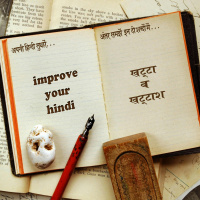 अपनी हिन्दी सुधारें...
improve
your
hindi
अंतर समझें इन शब्दों में...
खट्टा
व
खट्टाश